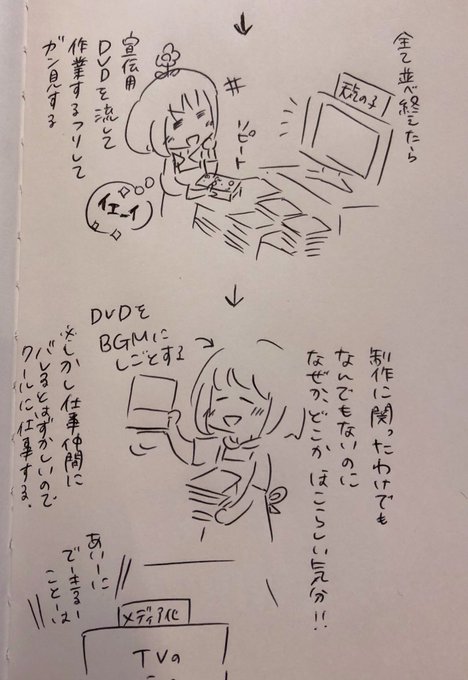 全て並べ終えたら
天気の子
リピート
宣伝用
DVDを流して
作業するフリして
ガン見する
イエーイ
DVDを
BGMに
しごとする
制作に関ったわけでも
なんでもないのに
なぜか、どこか ほこらしい気分!!
※しかし仕事仲間に
バレるとはずかしいので
クールに仕事する。
あいーに
でーきるー
ことーは
メディア化
TVの